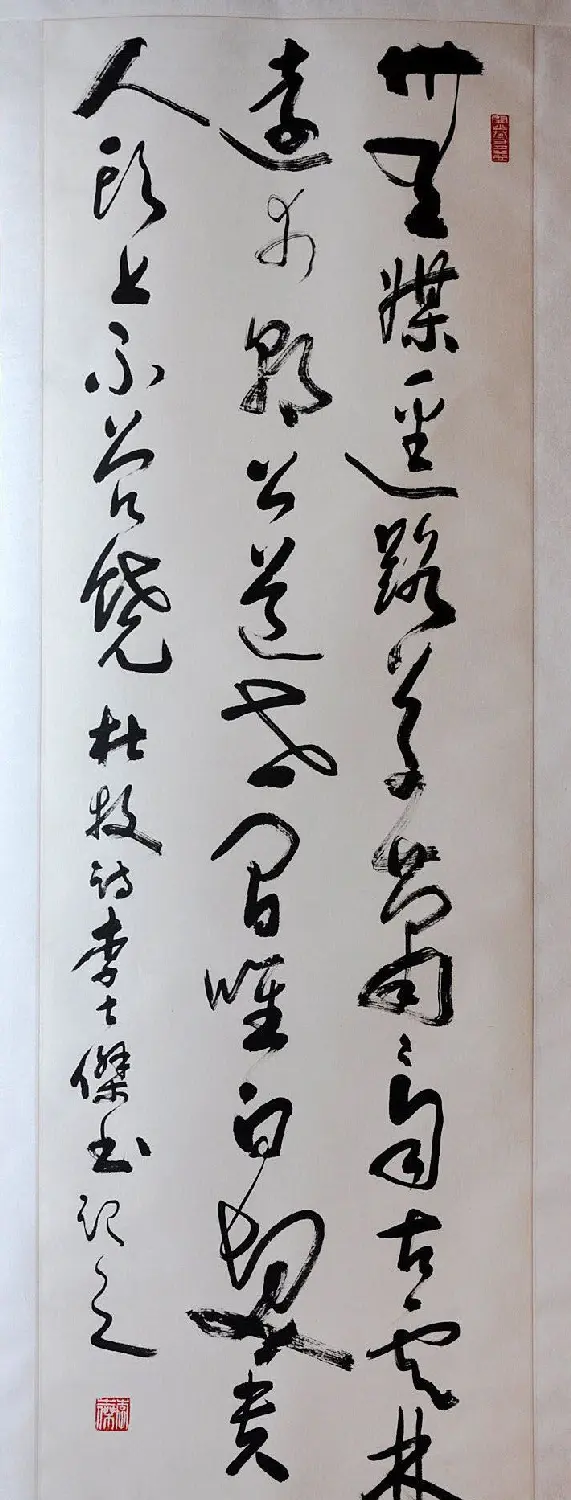 無媒逕路草蕭々自古雲林
遠市朝公道世間唯白髮貴
人頭上不曾饒 杜牧詩李士傑書記之